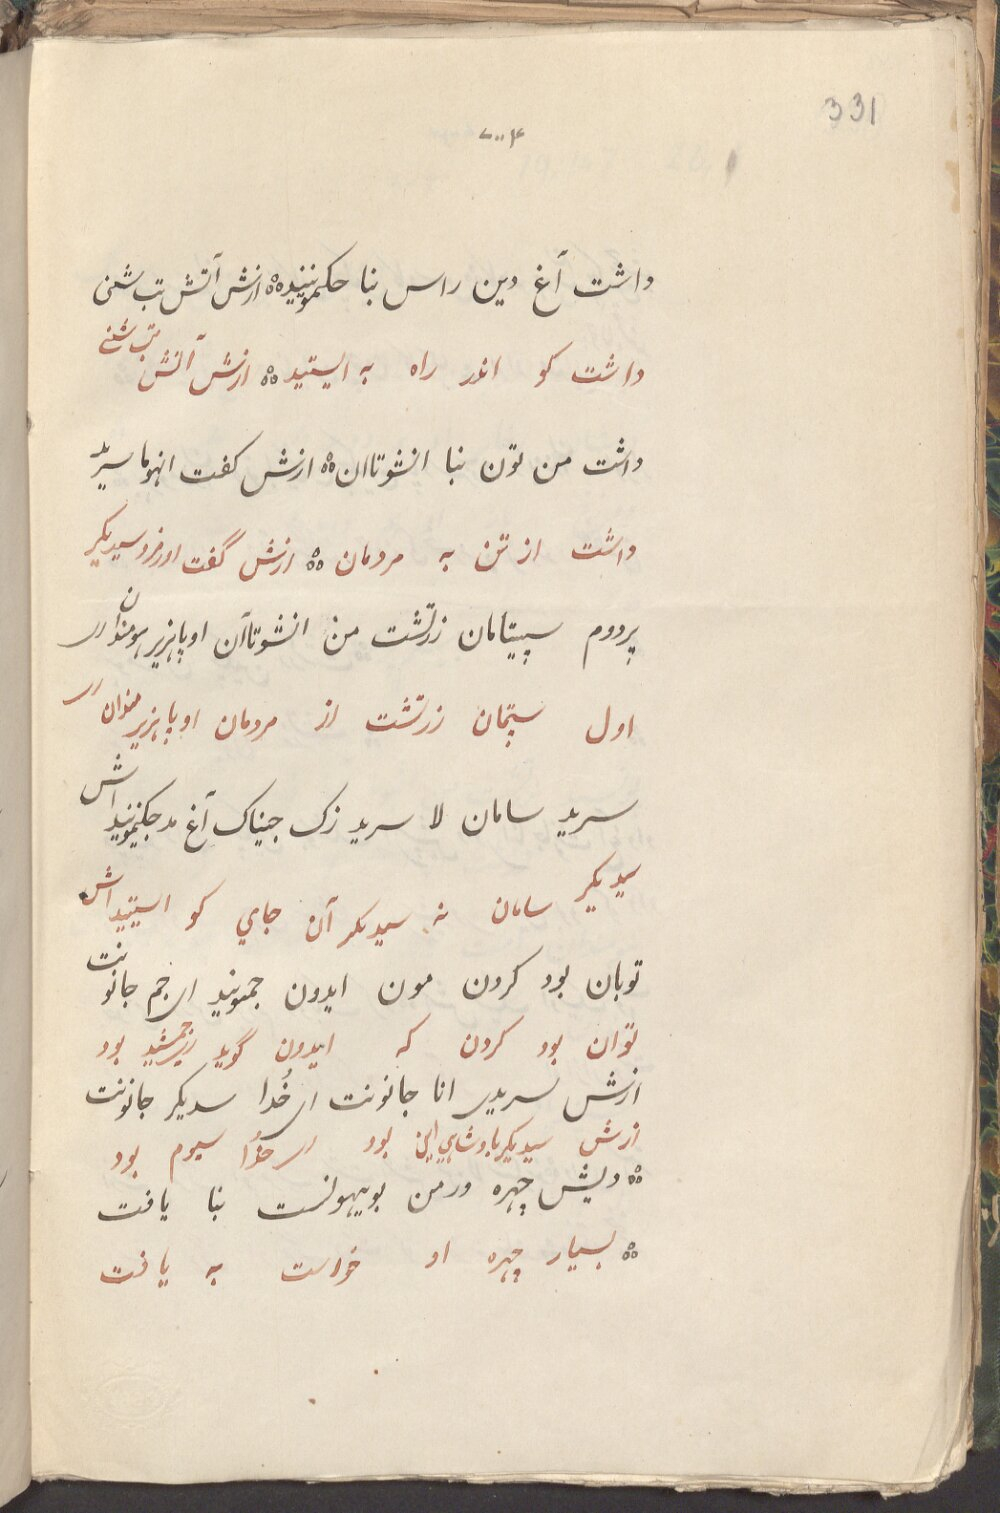 331
۷۰۰۴
داشت آغ دین راس بنا حکیمونند ؞ ازنش آتش تب شنی
داشت کو اندر راه به ایستید ؞ ازنش آتش تب شنی
داشت من تون بنا انشوتاان ؞ ازنش کفت انهوما سرید
داشت از تن به مردمان ؞ ازنش گفت اورمزد سیدیکر
پردوم سپیتامان زرتشت من انشوتاآن اوپاپزیر
اول سپتمان زرتشت از مردمان اوپاپزیر
سرید سامان لا سرید زک جیناک آغ اش
سیدیکر سامان نه سیدیکر آن جای کو استیید اش
توبان بود کردن مون ایدون جمنونید ای جم جانونت
توان بود کردن که ایدون گوید جمشید بود
ازش سریدی انا جانونت ای خُدا سدیکر جانونت
ازش سیدیکر پادشاهی بود ای خُدا سیوم بود
؞ ویش چهره ورمن بویهونست بنا یافت
؞ بسیار چهره او خواست به یافت